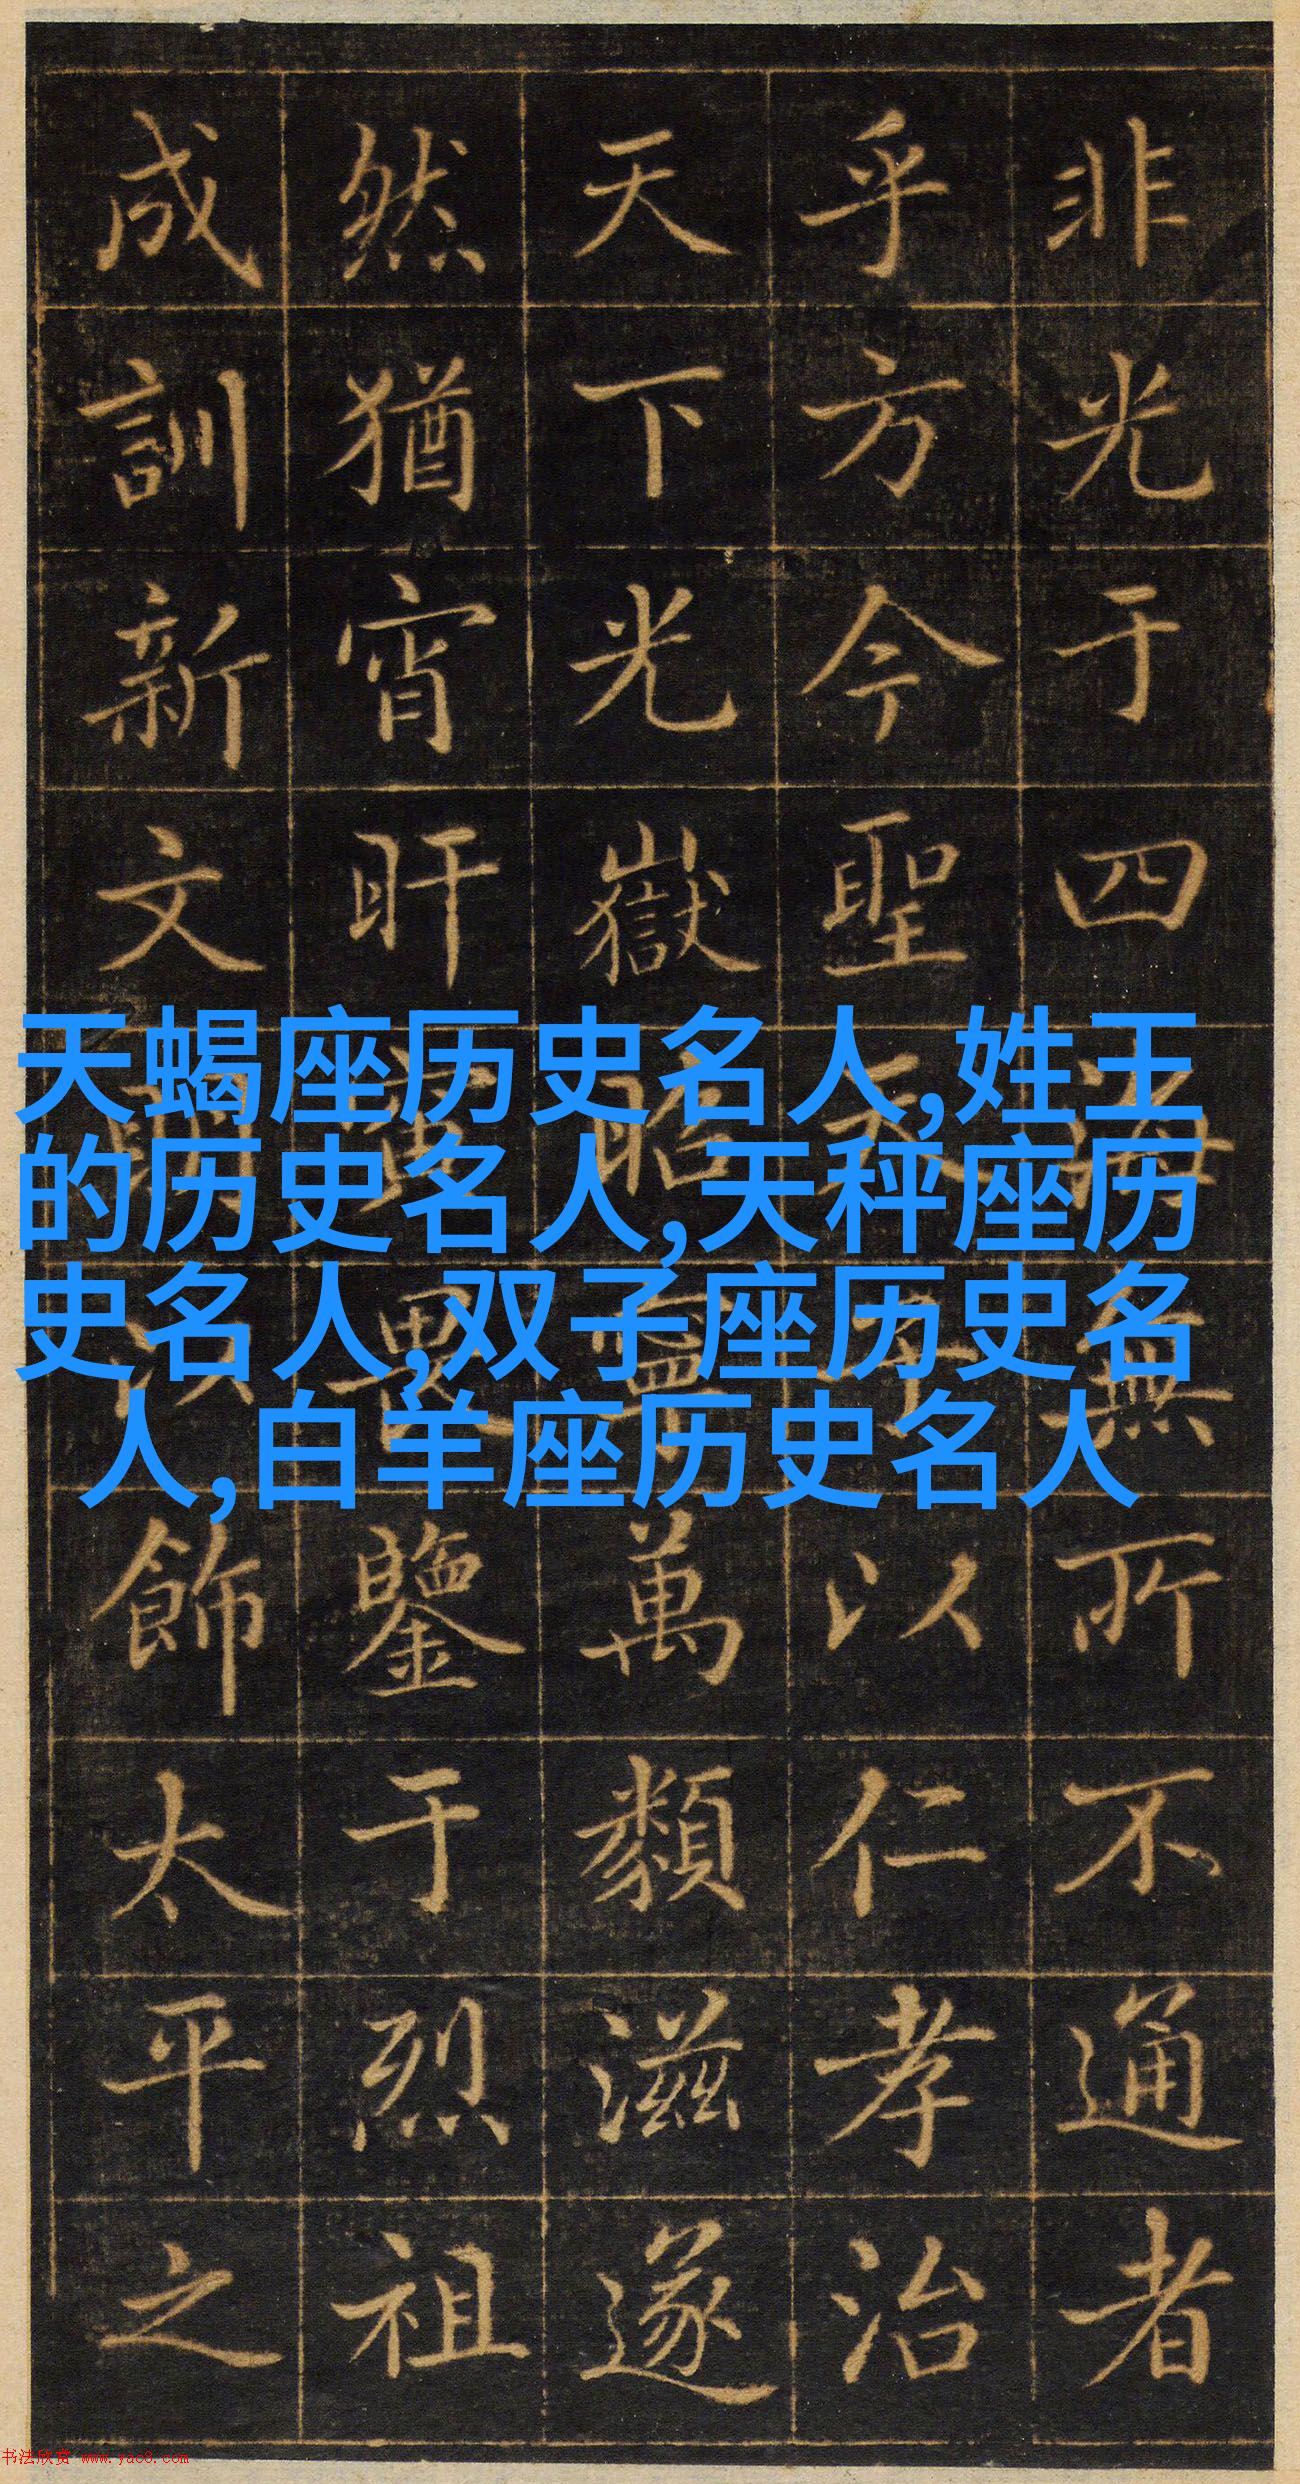 非光于四海無所不通者
乎方今聖天子以仁孝治
天下光嶽昭寧萬類滋遂
然猶宵旰寅畏鑒于烈祖
成訓新文以飾太平之
天蝎座历史名人,姓王
的历史名人,天秤座历
史名人,双子座历史名
人,白羊座历史名人
书法欣赏 www.yac8.com